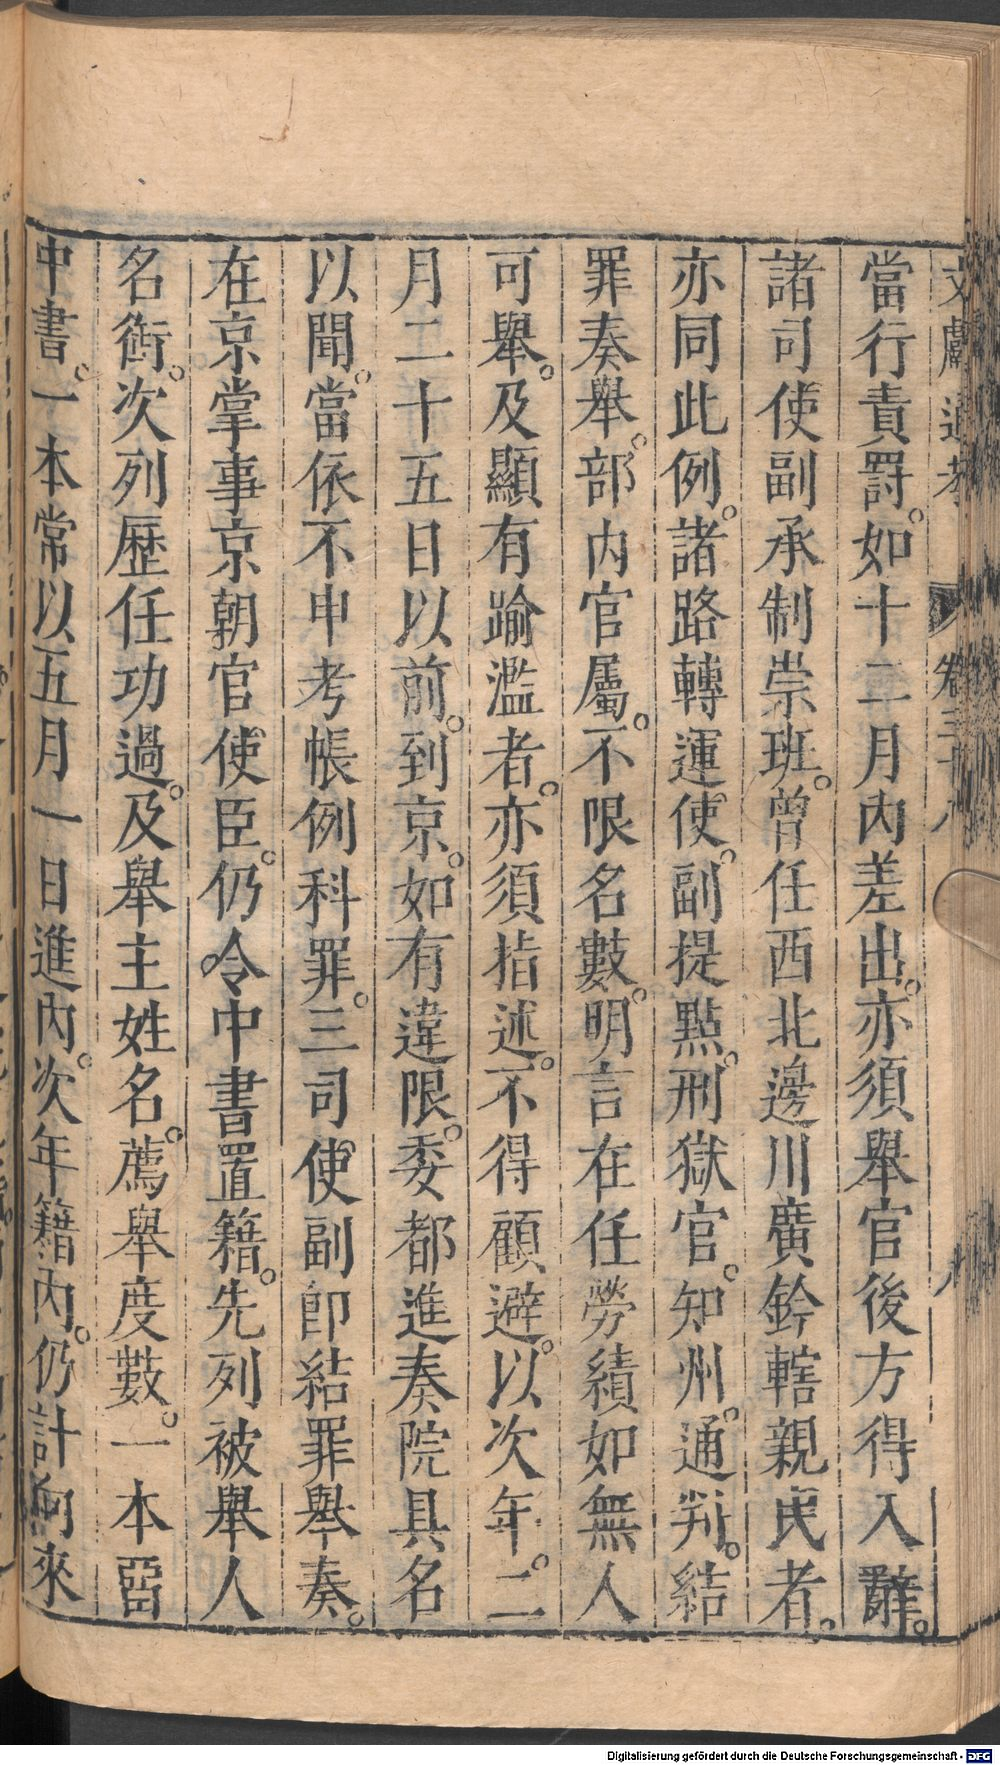 文獻通考 卷三十八 九
當行責罰。如十二月內差出。亦須舉官後方得入辭。
諸司使副承制崇班。曾任西北邊川廣鈐轄親民者。
亦同此例。諸路轉運使。副提點。刑獄官。知州。通判。結
罪奏舉。部內官屬。不限名數。明言在任勞績如無人
可舉。及顯有踰濫者。亦須指述。不得顧避。以次年。二
月二十五日以前。到京。如有違限。委都進奏院具名
以聞。當依不申考帳例科罪。三司使副卽結罪舉奏。
在京掌事京朝官使臣。仍令中書置籍。先列被舉人
名銜。次列歷任功過。及舉主姓名。薦舉度數。一本留
中書。一本常以五月一日進內。次年籍內。仍計向來
Digitalisierung gefördert durch die Deutsche Forschungsgemeinschaft - DFG